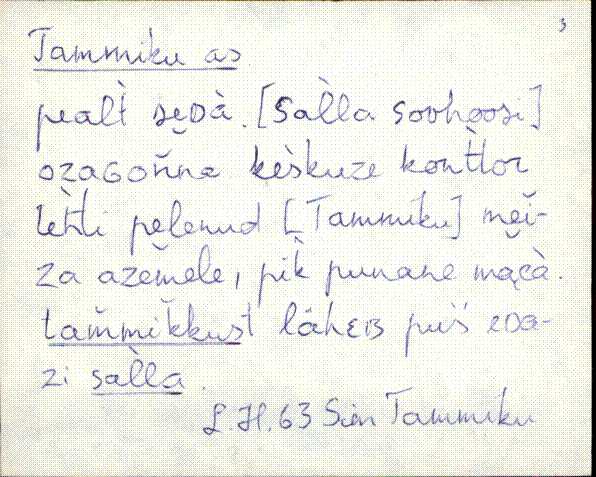 3
Tammiku as
pealt̀ sĕDà. [Sàlla sovhoosi]
ozaGon̆na kèskuze kont̀tor
teh̀ti pèlenud [Tammiku] mĕi-
za azem̆ele, pik̀ punane mặcà.
tam̆mik̆kust läheB puis̆ eDa-
zi sàlla.
L.H. 63 Sim Tammiku